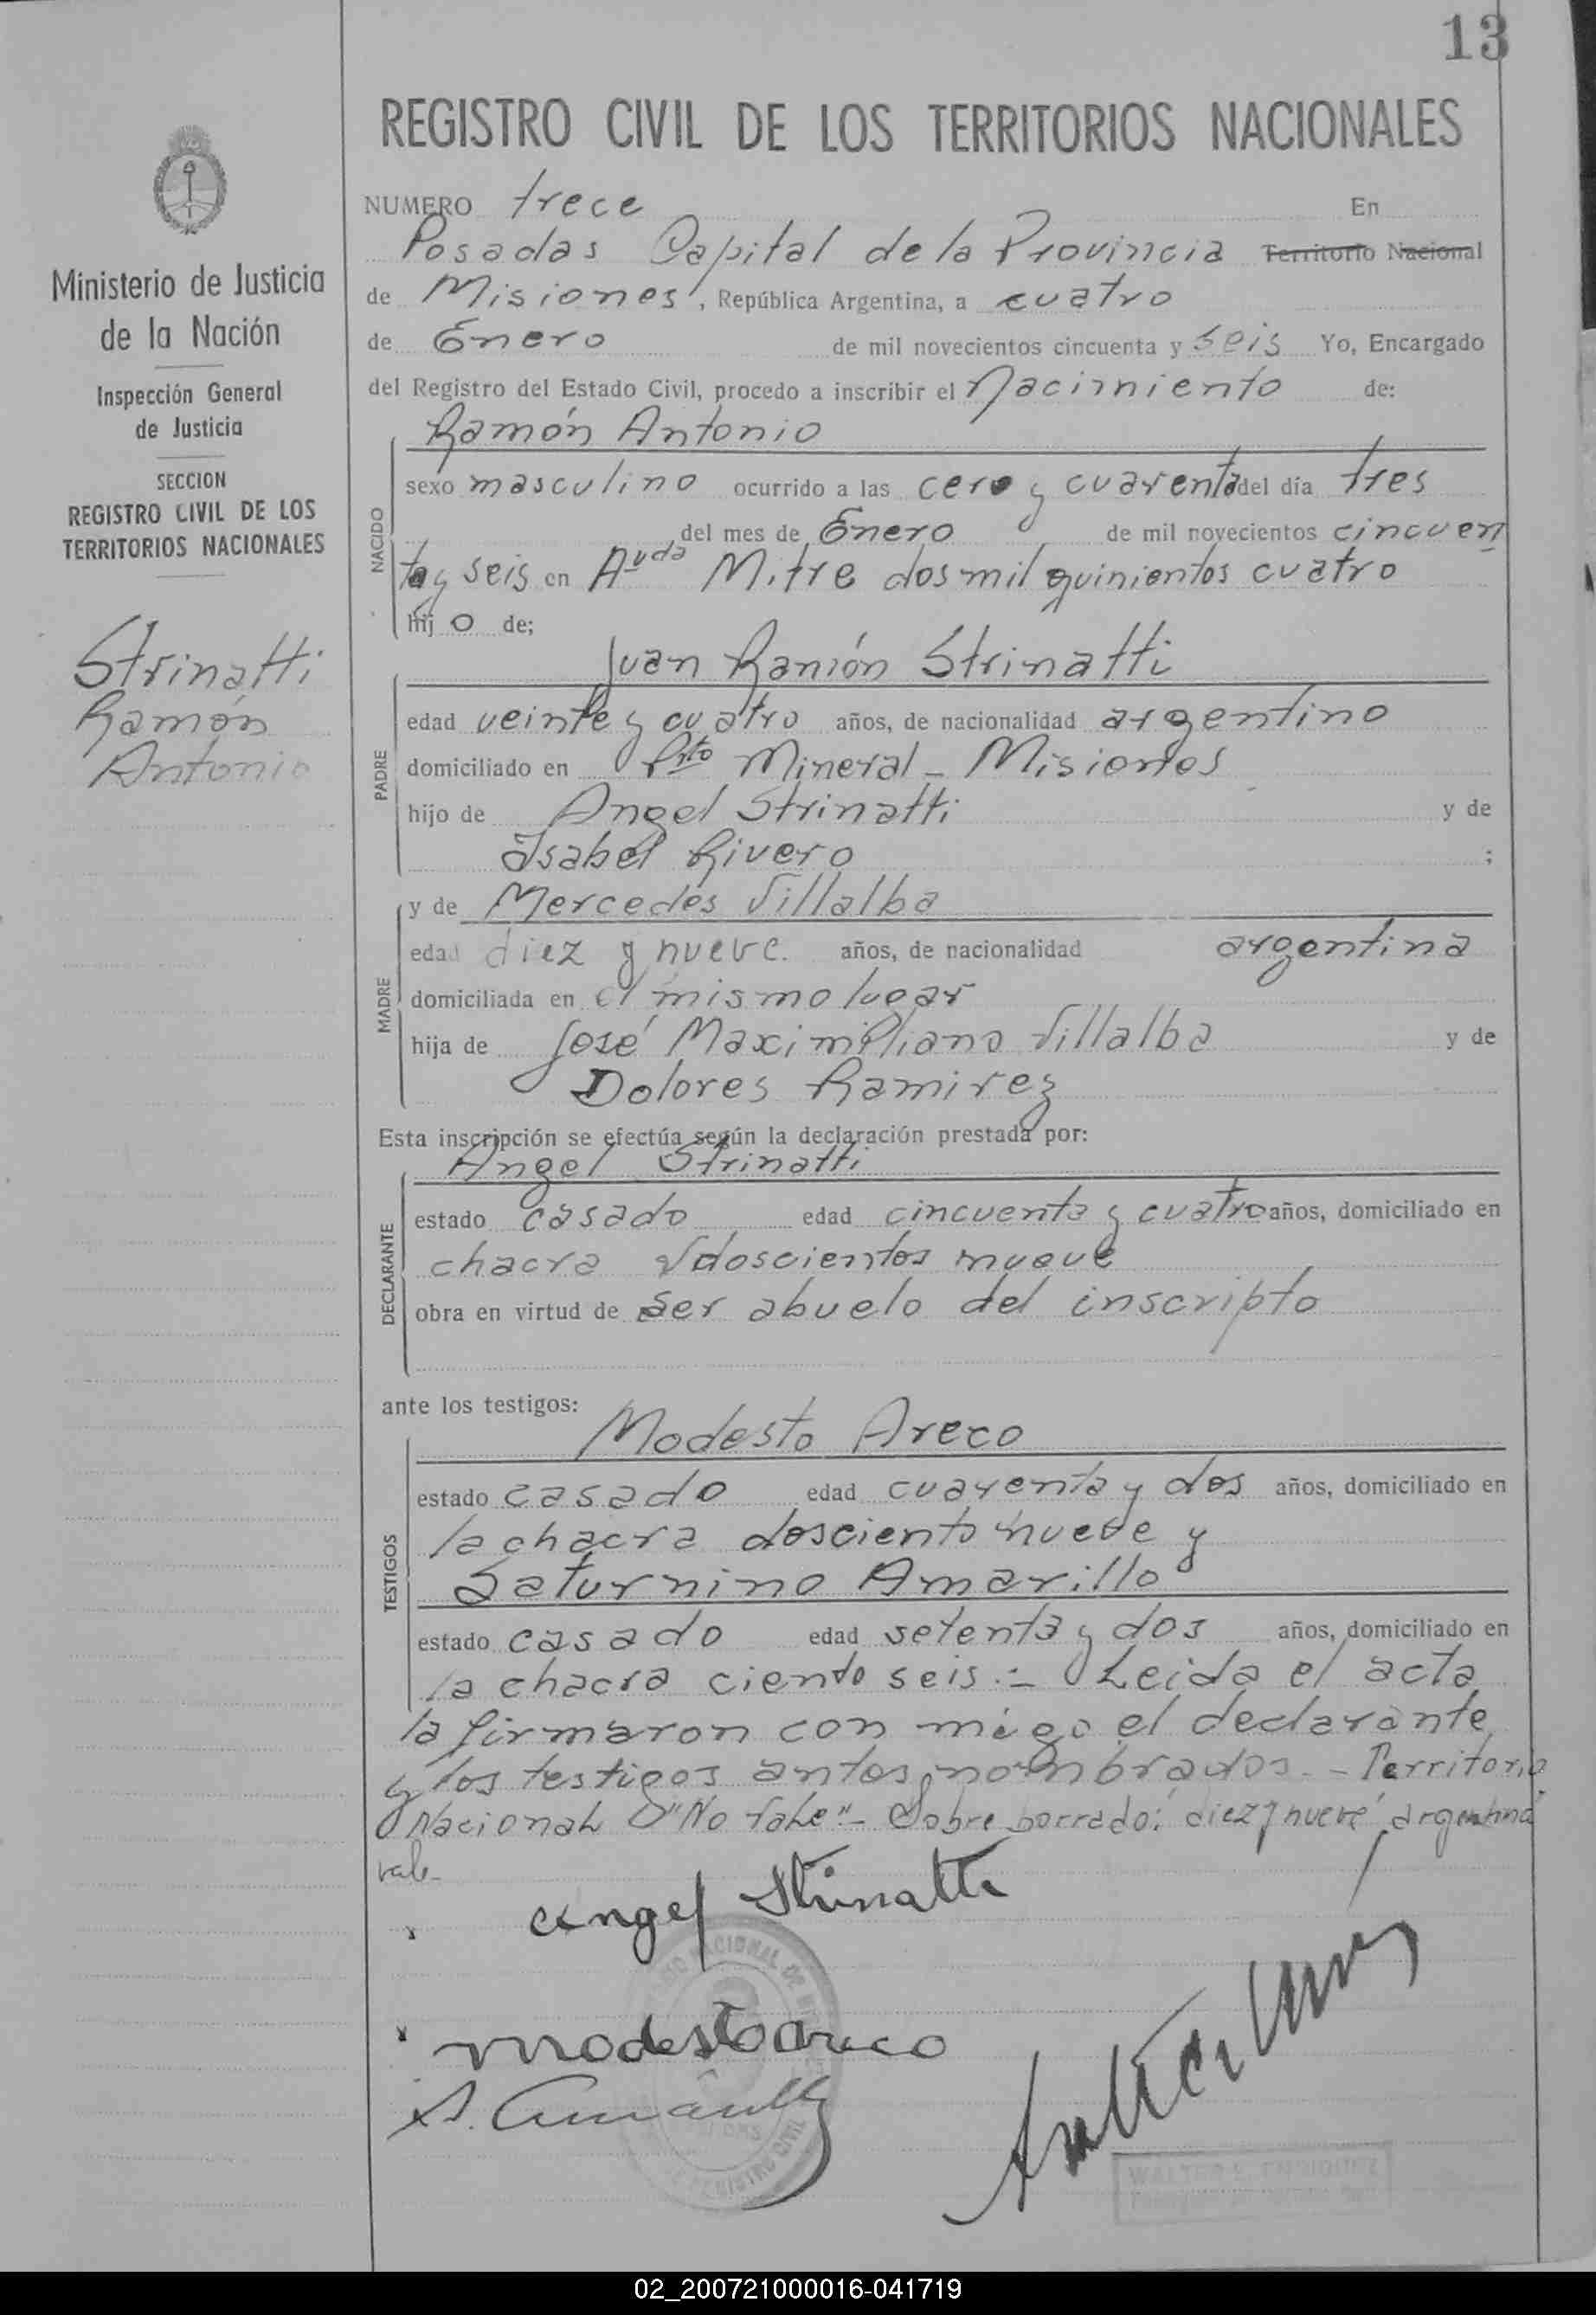 13
REGISTRO CIVIL DE LOS TERRITORIOS NACIONALES
Ministerio de Justicia
de la Nación
Inspección General
de Justicia
SECCION
REGISTRO CIVIL DE LOS
TERRITORIOS NACIONALES
Strinatti
Ramón
Antonio
NUMERO trece En
Posadas Capital de la Provincia Territorio Nacional
de Misiones, República Argentina, a cuatro
de Enero de mil novecientos cincuenta y seis Yo, Encargado
del Registro del Estado Civil, procedo a inscribir el Nacimiento de:
NACIDO
Ramón Antonio
sexo masculino ocurrido a las cero y cuarenta del día tres
del mes de Enero de mil novecientos cincuen
ta y seis en Avda Mitre dos mil quinientos cuatro
hijo de;
PADRE
Juan Ramón Strinatti
edad veinte y cuatro años, de nacionalidad argentino
domiciliado en Pto Mineral - Misiones
hijo de Angel Strinatti y de
Isabel Rivero ;
MADRE
y de Mercedes Villalba
edad diez y nueve. años, de nacionalidad argentina
domiciliada en el mismo lugar
hija de José Maximiliano Villalba y de
Dolores Ramirez
Esta inscripción se efectúa según la declaración prestada por:
DECLARANTE
Angel Strinatti
estado casado edad cincuenta y cuatro años, domiciliado en
chacra doscientos nueve
obra en virtud de ser abuelo del inscripto
ante los testigos:
TESTIGOS
Modesto Areco
estado casado edad cuarenta y dos años, domiciliado en
la chacra dosciento nueve y
Saturnino Amarillo
estado casado edad setenta y dos años, domiciliado en
la chacra ciento seis.- Leida el acta
la firmaron con migo el declarante
y los testigos antes nombrados.- Territorio
Nacional "No Vale"- Sobre borrado: diez y nueve, argentina
vale-
Angel Strinatti
modesto areco
S. Amarilla
REGISTRO CIVIL
02_200721000016-041719